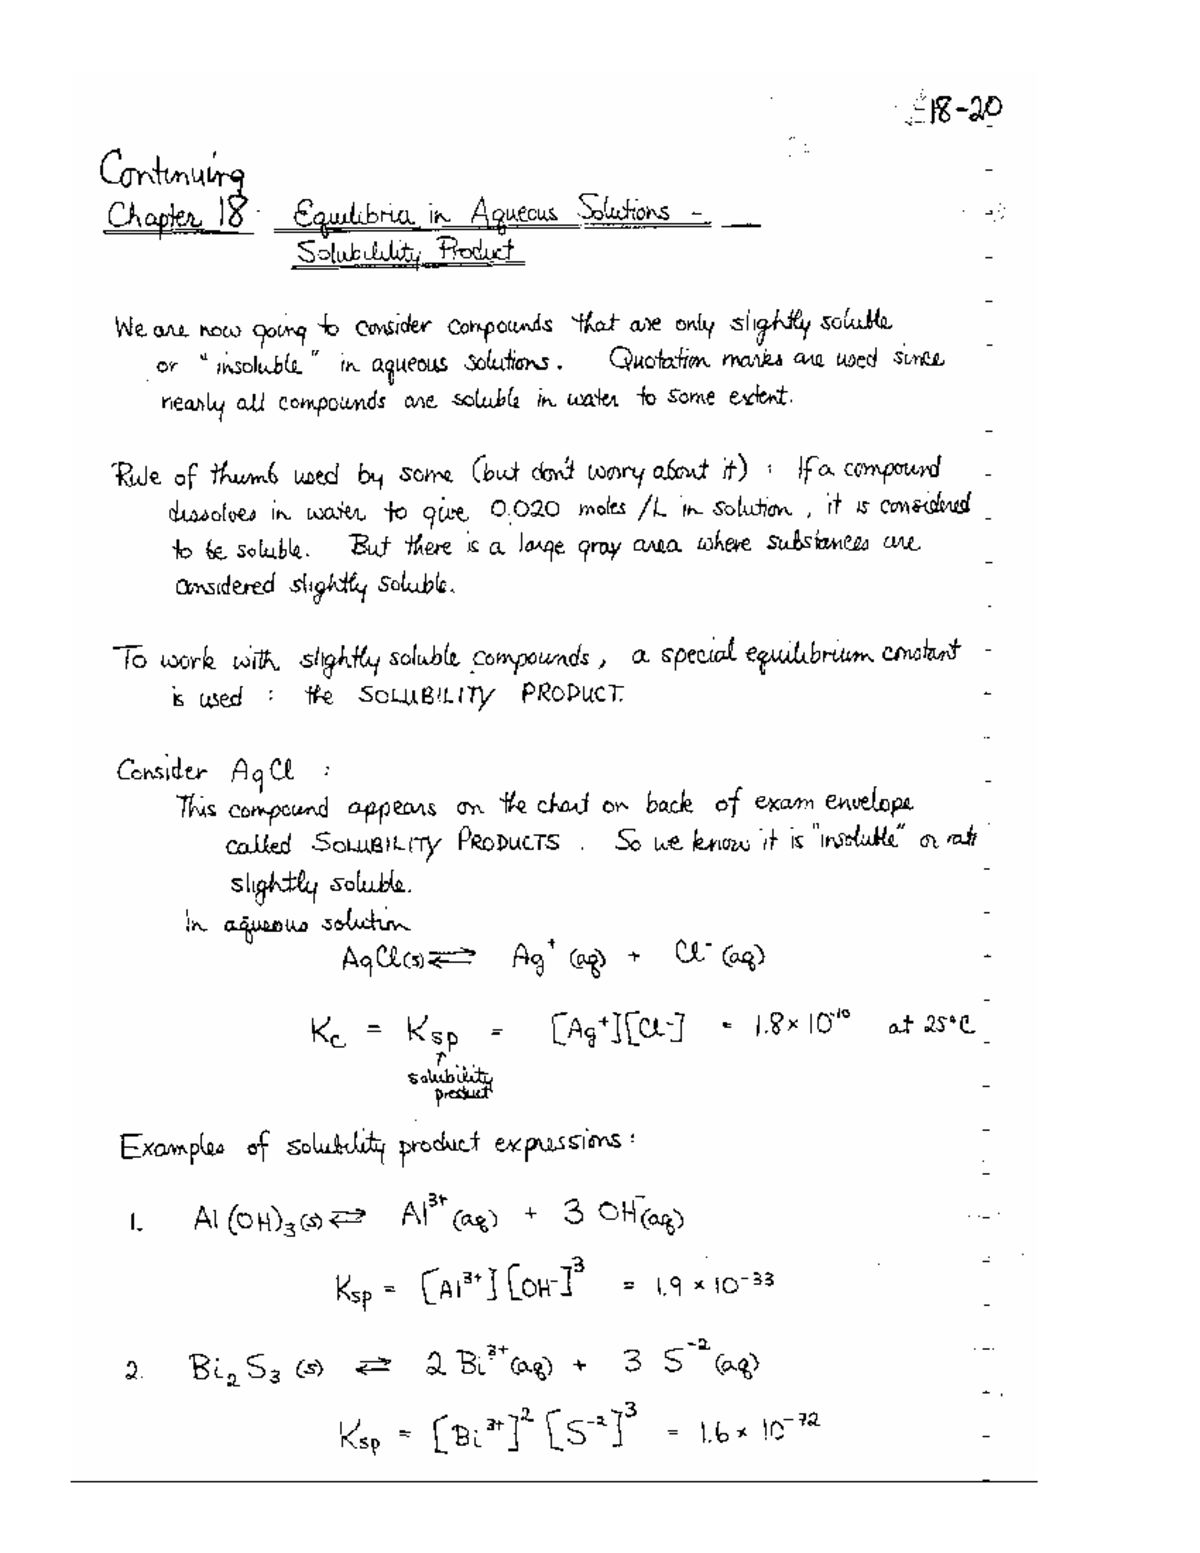 18-20
Continuing
Chapter 18 Equilibria in Aqueous Solutions -
Solubility Product
We are now going to consider compounds that are only slightly soluble
or "insoluble" in aqueous solutions. Quotation marks are used since
nearly all compounds are soluble in water to some extent.
Rule of thumb used by some (but don't worry about it) : If a compound
dissolves in water to give 0.020 moles /L in solution, it is considered
to be soluble. But there is a large gray area where substances are
considered slightly soluble.
To work with slightly soluble compounds, a special equilibrium constant
is used : the SOLUBILITY PRODUCT.
Consider AgCl :
This compound appears on the chart on back of exam envelope
called SOLUBILITY PRODUCTS. So we know it is "insoluble" or
slightly soluble.
In aqueous solution
AgCl(s) ⇌ Ag⁺(aq) + Cl⁻(aq)
Kc = Ksp = [Ag⁺][Cl⁻] = 1.8 × 10⁻¹⁰ at 25°C
↑
solubility
product
Examples of solubility product expressions:
1. Al(OH)₃(s) ⇌ Al³⁺(aq) + 3 OH⁻(aq)
Ksp = [Al³⁺][OH⁻]³ = 1.9 × 10⁻³³
2. Bi₂S₃(s) ⇌ 2 Bi³⁺(aq) + 3 S⁻²(aq)
Ksp = [Bi³⁺]²[S⁻²]³ = 1.6 × 10⁻⁷²